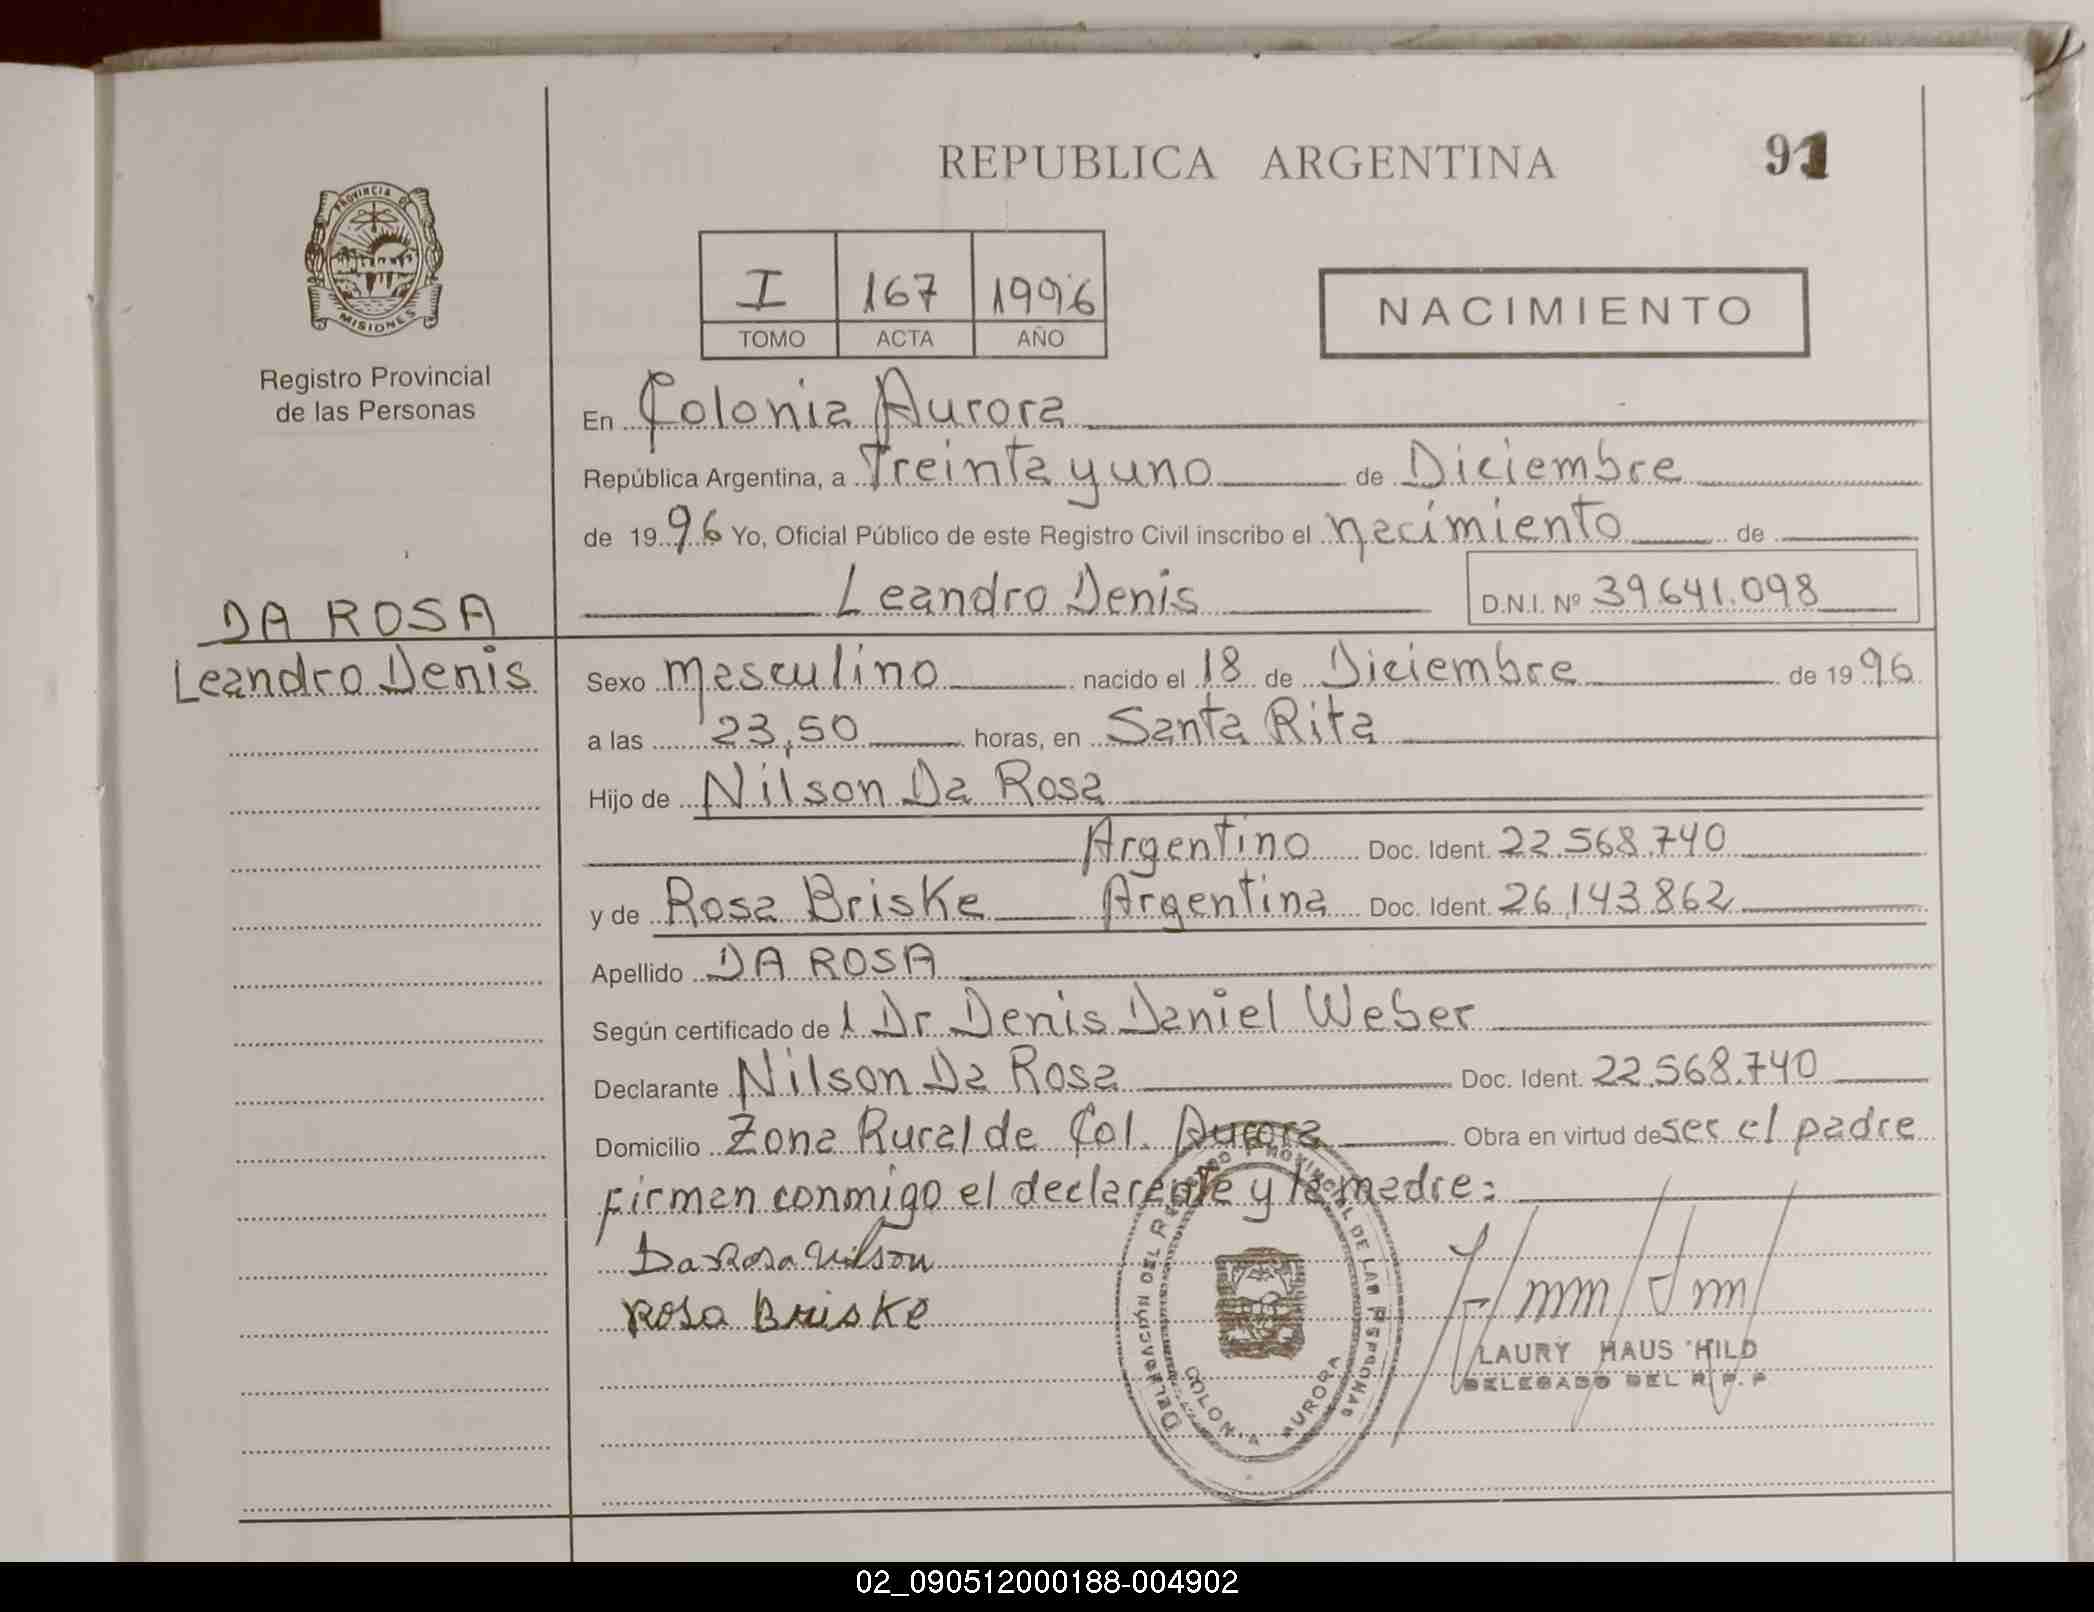 REPUBLICA ARGENTINA
91
PROVINCIA DE
MISIONES
Registro Provincial
de las Personas
I 167 1996
TOMO ACTA AÑO
NACIMIENTO
En Colonia Aurora
República Argentina, a Treinta y uno de Diciembre
de 1996 Yo, Oficial Público de este Registro Civil inscribo el nacimiento de
Leandro Denis D.N.I. Nº 39.641.098
DA ROSA
Leandro Denis
Sexo masculino nacido el 18 de Diciembre de 1996
a las 23,50 horas, en Santa Rita
Hijo de Nilson Da Rosa
Argentino Doc. Ident. 22.568.740
y de Rosa Briske Argentina Doc. Ident. 26.143.862
Apellido DA ROSA
Según certificado de l Dr Denis Daniel Weber
Declarante Nilson Da Rosa Doc. Ident. 22.568.740
Domicilio Zona Rural de Col. Aurora Obra en virtud de ser el padre
firman conmigo el declarante y la madre:
Da Rosa Nilson
Rosa Briske
DELEGACIÓN DEL REGISTRO PROVINCIAL DE LAS PERSONAS
COLONIA AURORA
LAURY HAUS HILD
DELEGADO DEL R.P.P
02_090512000188-004902